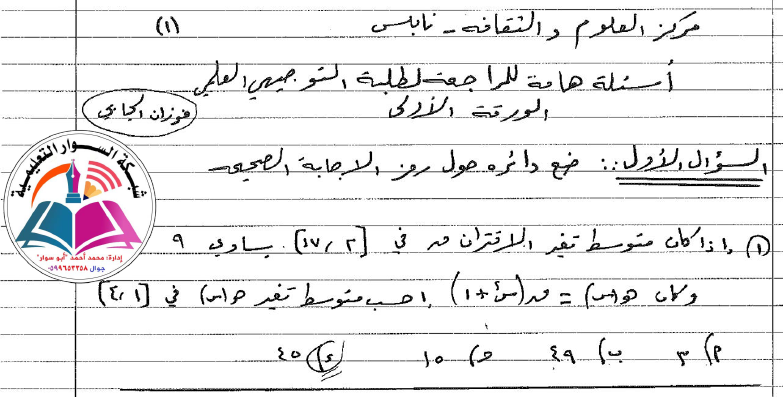 (١)
مركز العلوم والثقافه - نابلس
أسئلة هامة للمراجعة لطلبة التوجيهي العلمي
الورقة الأولى
فوزان
شبكة السوار التعليمية
إدارة: محمد أحمد "أبو سوار"
جوال ٠٥٩٩٦٥٣٢٥٨
السؤال الأول:: ضع دائره حول رمز الاجابة الصحيحه-
١) اذا كان متوسط تغير الاقتران ق في [٢، ١٧] يساوي ٩
وكان هـ(س) = ق(س²+١) احسب متوسط تغير هـ(س) في [١، ٤]
أ) ٣ ب) ٤٩ ج) ١٥ د) ٤٥